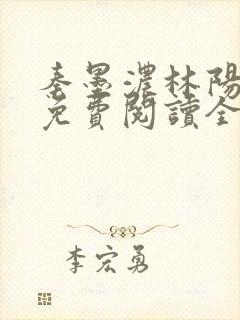 秦墨濃林陽
免費閱讀全
李宏勇